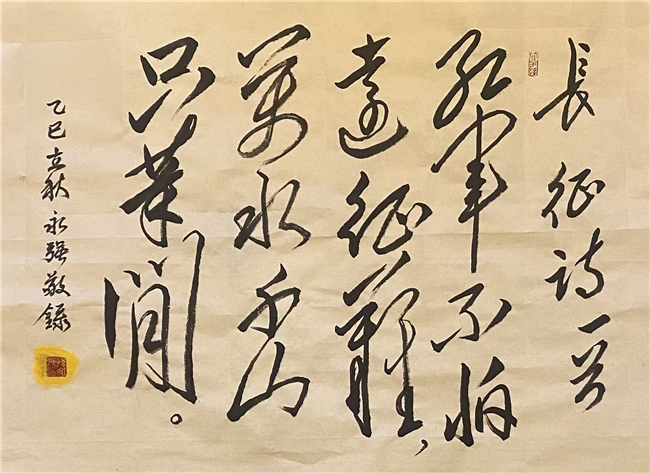 長征詩一首
紅軍不怕
遠征難，
萬水千山
只等閒。
乙巳立秋永強敬錄